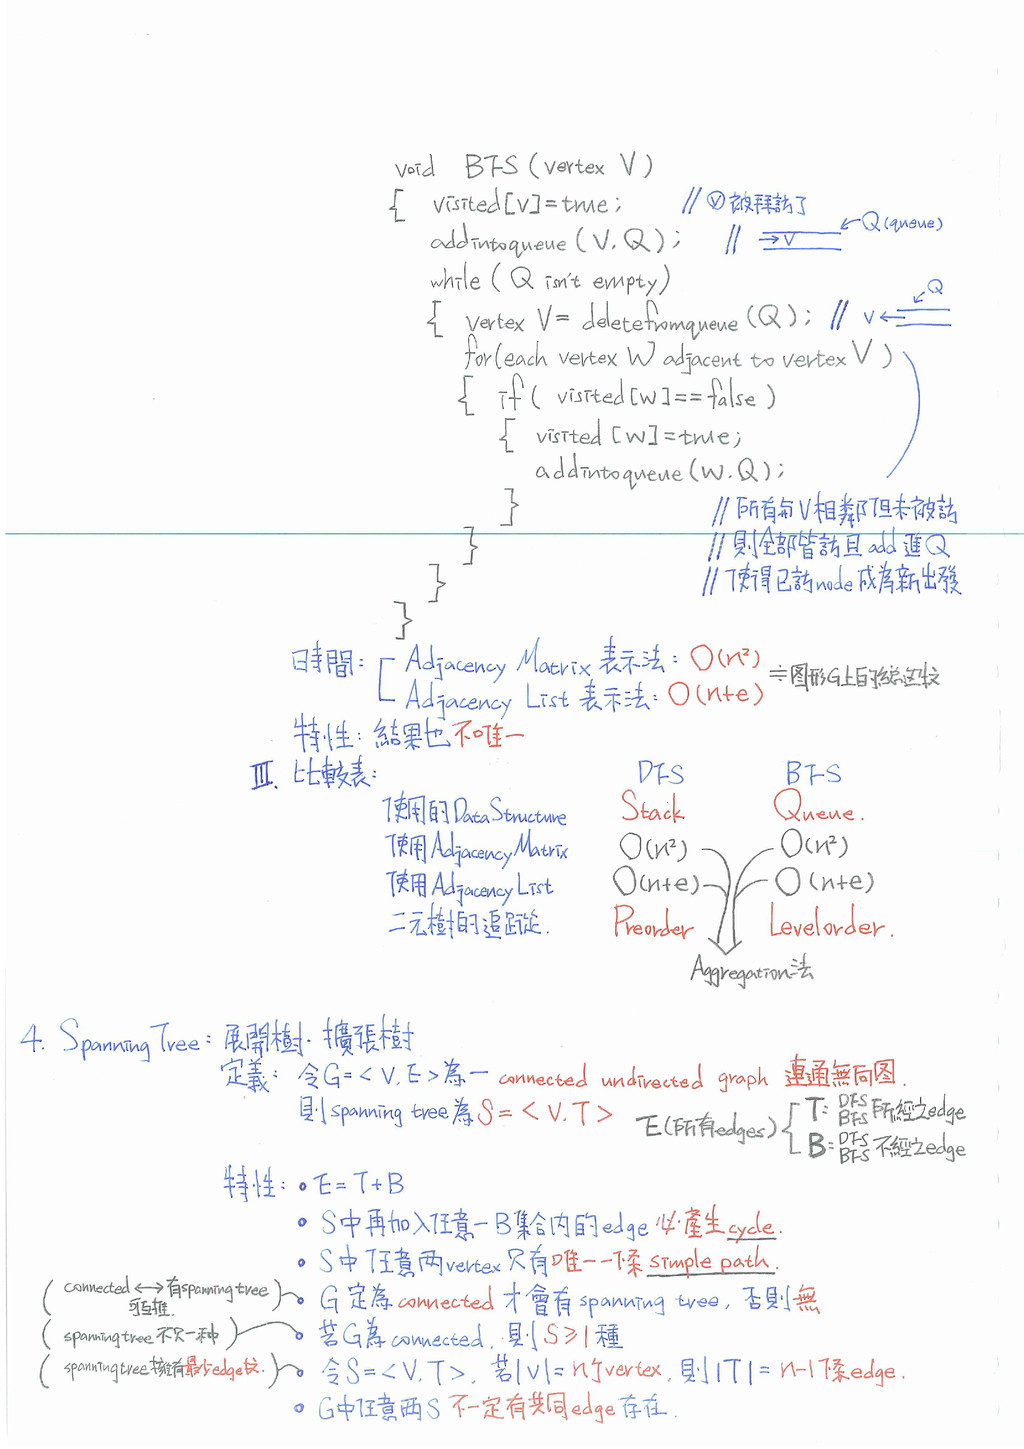 void BFS (vertex V)
{ visited[v]=true; // ⓥ 被拜訪了
addintoqueue (V,Q); // →V Q(queue)
while ( Q isn't empty)
{ vertex V= deletefromqueue (Q); // V← Q
for(each vertex W adjacent to vertex V )
{ if( visited[w]==false )
{ visited [w]=true;
addintoqueue (w,Q);
} // 所有與V相鄰但未被訪
} // 則全部皆訪且 add 進 Q
} // 使得已訪node成為新出發
}
時間: Adjacency Matrix 表示法: O(n²)
Adjacency List 表示法: O(n+e) ≒图形G上的
特性: 結果也不唯一
III. 比較表: DFS BFS
使用的DataStructure Stack Queue.
使用AdjacencyMatrix O(n²) O(n²)
使用AdjacencyList O(n+e) O(n+e)
二元樹的追蹤 Preorder Levelorder.
Aggregation法
4. Spanning Tree: 展開樹. 擴張樹
定義: 令G=<V,E>為一 connected undirected graph 連通無向图.
則 spanning tree 為 S=<V,T> E(所有edges) T: DFS BFS 所經之edge
B: DFS BFS 不經之edge
特性: • E=T+B
• S中再加入任意一B集合內的edge 必產生cycle.
• S中任意两vertex 只有唯一一條 simple path.
( connected ↔ 有spanning tree 可互推. • G 定為connected 才會有 spanning tree, 否則無
( spanning tree 不只一种 ) • 若G為connected, 則 S≥1種
( spanning tree 擁有最少edge数. ) • 令S=<V,T>, 若|V|=n个vertex, 則|T|=n-1條edge.
• G中任意两S 不一定有共同edge存在.